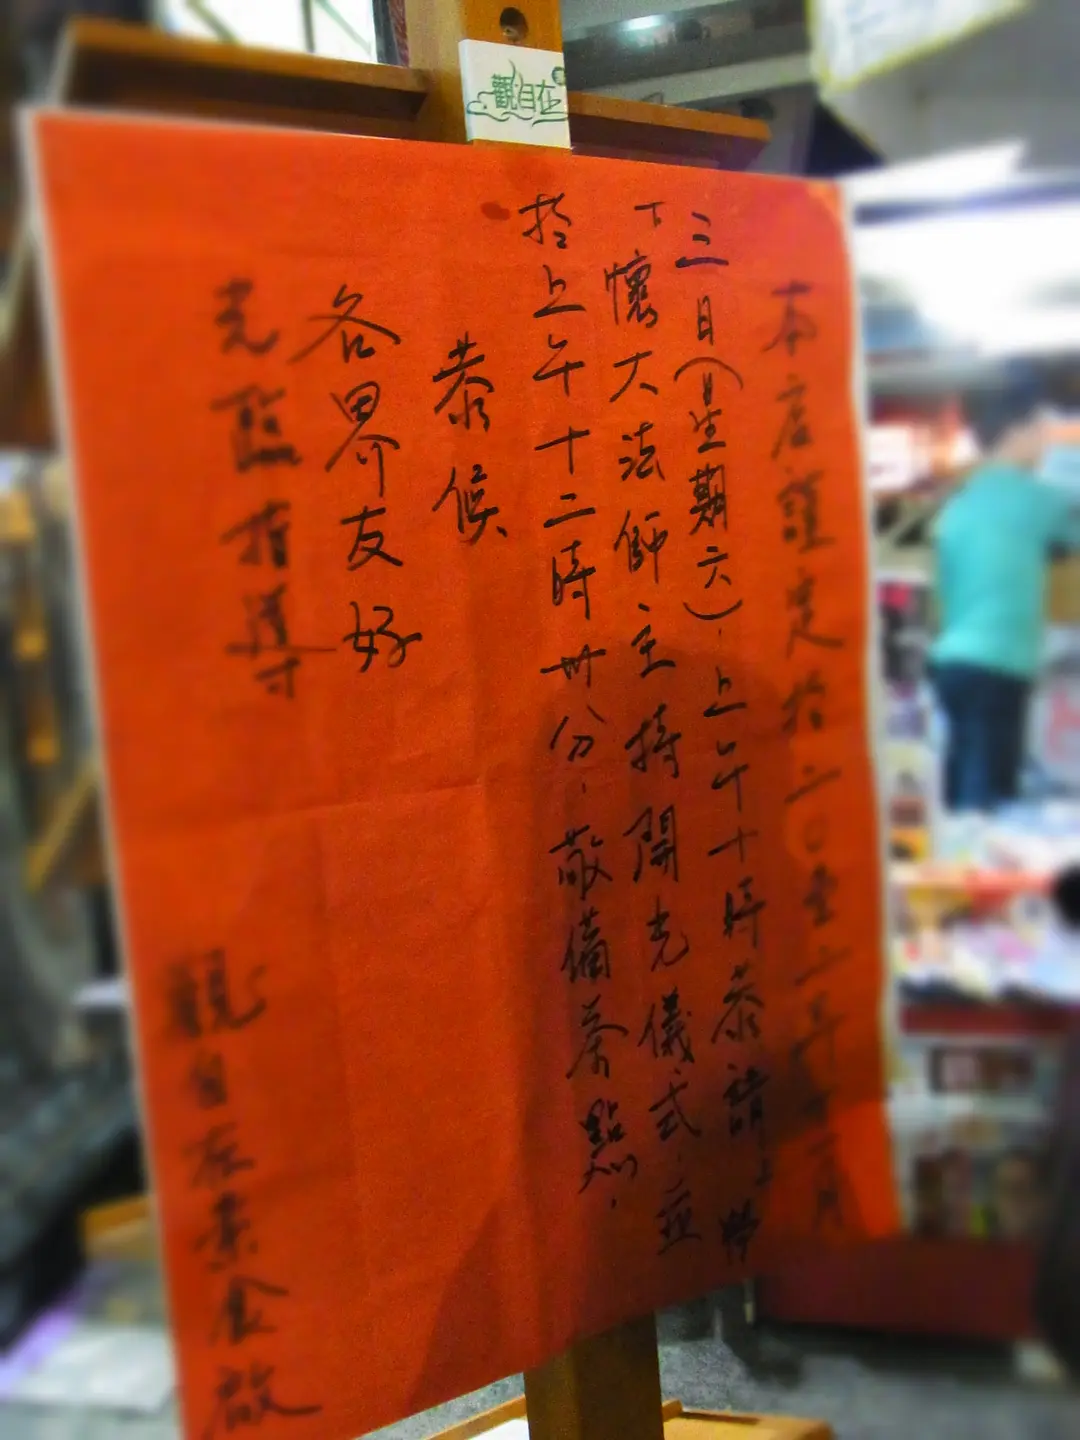 觀自在
本店謹定於二〇壹二年十一月
三日(星期六),上午十時恭請上常
下懷大法師主持開光儀式,並
於上午十二時卅分,敬備茶點,
恭候
各界友好
光臨指導
觀自在素食啟